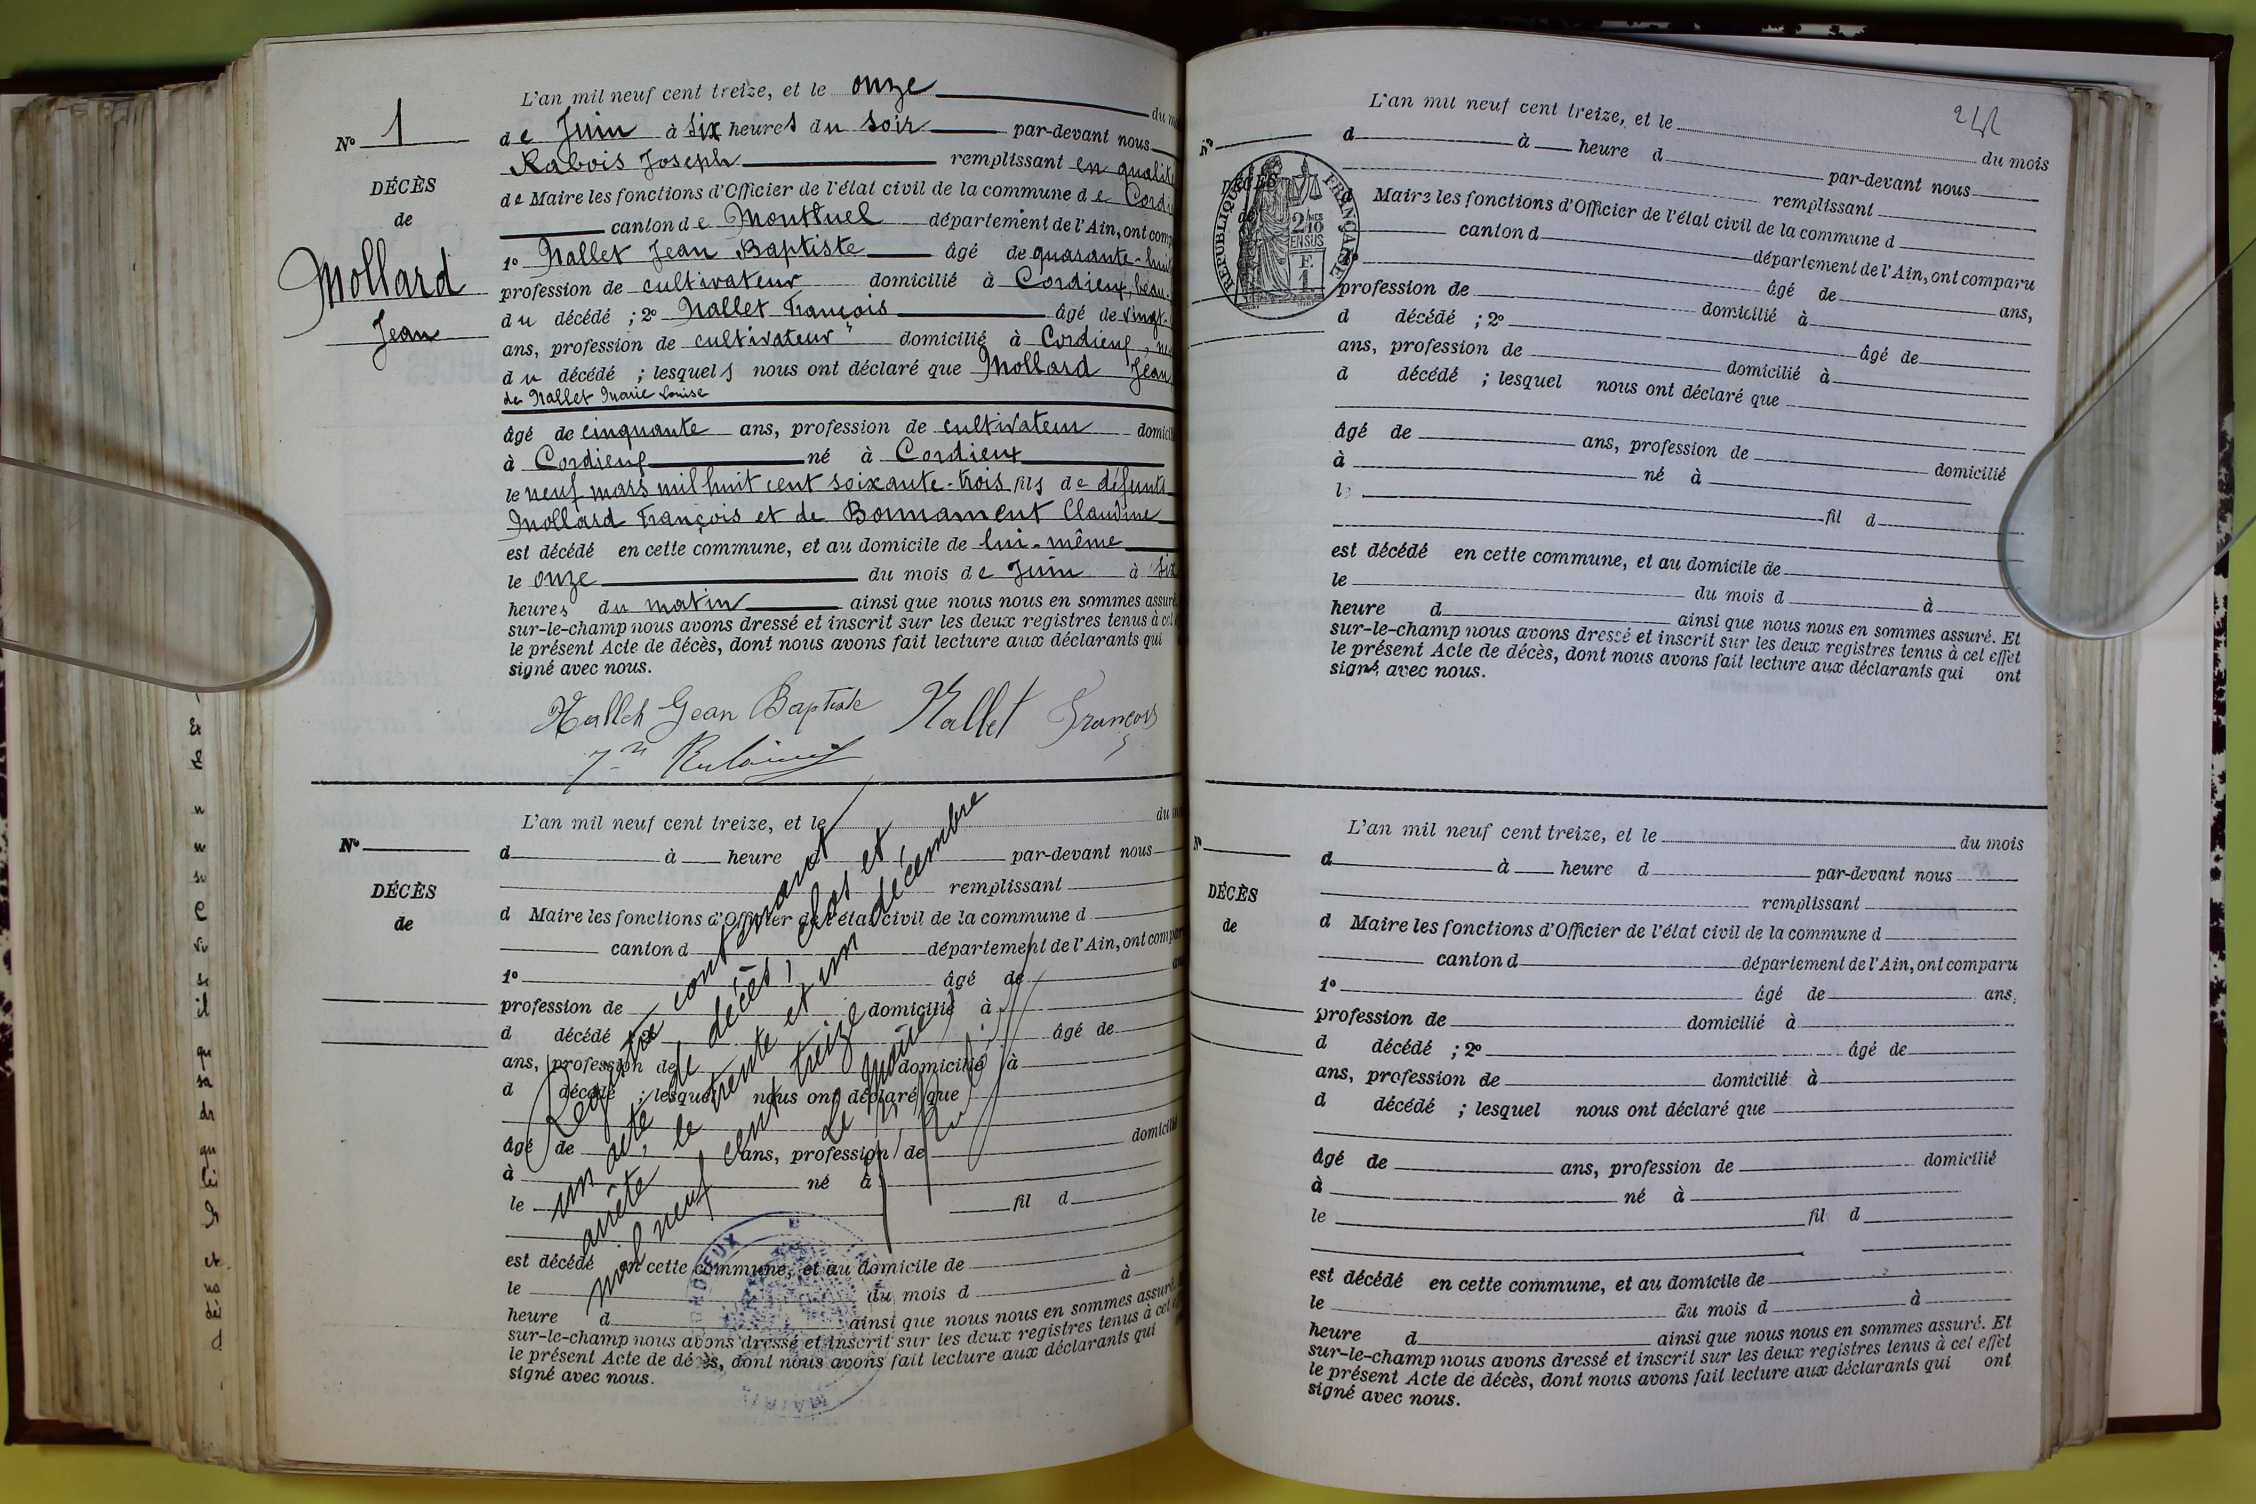 L'an mil neuf cent treize, et le onze du m
de Juin à six heures du soir par-devant nous
Rabois Joseph remplissant en qualité
de Maire les fonctions d'Officier de l'état civil de la commune de Cordi
canton de Montluel département de l'Ain, ont comp
1º Nallet Jean Baptiste âgé de quarante-huit
profession de cultivateur domicilié à Cordieux, beau-
du décédé ; 2º Nallet François âgé de vingt-
ans, profession de cultivateur domicilié à Cordieux, ne
du décédé ; lesquels nous ont déclaré que Mollard Jean
de Nallet Marie Louise
âgé de cinquante ans, profession de cultivateur domici
à Cordieux né à Cordieux
le neuf mars mil huit cent soixante-trois fils de défunts
Mollard François et de Bonnament Claudine
est décédé en cette commune, et au domicile de lui-même
le onze du mois de Juin à six
heures du matin ainsi que nous nous en sommes assuré
sur-le-champ nous avons dressé et inscrit sur les deux registres tenus à cet
le présent Acte de décès, dont nous avons fait lecture aux déclarants qui
signé avec nous.
Nallet Jean Baptiste Nallet François
Nº 1
DÉCÈS
de
Mollard
Jean
L'an mil neuf cent treize, et le du m
d à heure par-devant nous
remplissant
d Maire les fonctions d'Officier de l'état civil de la commune d
canton d département de l'Ain, ont compar
1º âgé de an
profession de domicilié à
d décédé ; 2º âgé de
ans, profession de domicilié à
d décédé ; lesquel nous ont déclaré que
âgé de ans, profession de domicilié
à né à
le fil d
est décédé en cette commune, et au domicile de
le du mois d à
heure d ainsi que nous nous en sommes assuré
sur-le-champ nous avons dressé et inscrit sur les deux registres tenus à cet
le présent Acte de décès, dont nous avons fait lecture aux déclarants qui
signé avec nous.
Nº
DÉCÈS
de
Registre contenant
un acte de décès, clos et
arrêté, le trente et un décembre
mil neuf cent treize
Le Maire
L'an mil neuf cent treize, et le du mois
d à heure d par-devant nous
remplissant
Maire les fonctions d'Officier de l'état civil de la commune d
canton d département de l'Ain, ont comparu
âgé de ans,
profession de domicilié à
d décédé ; 2º âgé de
ans, profession de domicilié à
d décédé ; lesquel nous ont déclaré que
âgé de ans, profession de domicilié
à né à
le fil d
est décédé en cette commune, et au domicile de
le du mois d à
heure d ainsi que nous nous en sommes assuré. Et
sur-le-champ nous avons dressé et inscrit sur les deux registres tenus à cet effet
le présent Acte de décès, dont nous avons fait lecture aux déclarants qui ont
signé avec nous.
Nº
DÉCÈS
de
RÉPUBLIQUE FRANÇAISE
2/10MES
EN SUS
F.
1.
L'an mil neuf cent treize, et le du mois
d à heure d par-devant nous
remplissant
d Maire les fonctions d'Officier de l'état civil de la commune d
canton d département de l'Ain, ont comparu
1º âgé de ans,
profession de domicilié à
d décédé ; 2º âgé de
ans, profession de domicilié à
d décédé ; lesquel nous ont déclaré que
âgé de ans, profession de domicilié
à né à
le fil d
est décédé en cette commune, et au domicile de
le du mois d à
heure d ainsi que nous nous en sommes assuré. Et
sur-le-champ nous avons dressé et inscrit sur les deux registres tenus à cet effet
le présent Acte de décès, dont nous avons fait lecture aux déclarants qui ont
signé avec nous.
Nº
DÉCÈS
de